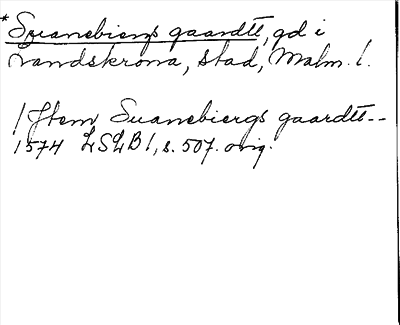 *Suanebiergs gaardtt, gd i
Landskrona, stad, Malm. l.
/Jtem Suanebiergs gaardtt--
1574 LSLB 1, s. 507. orig.